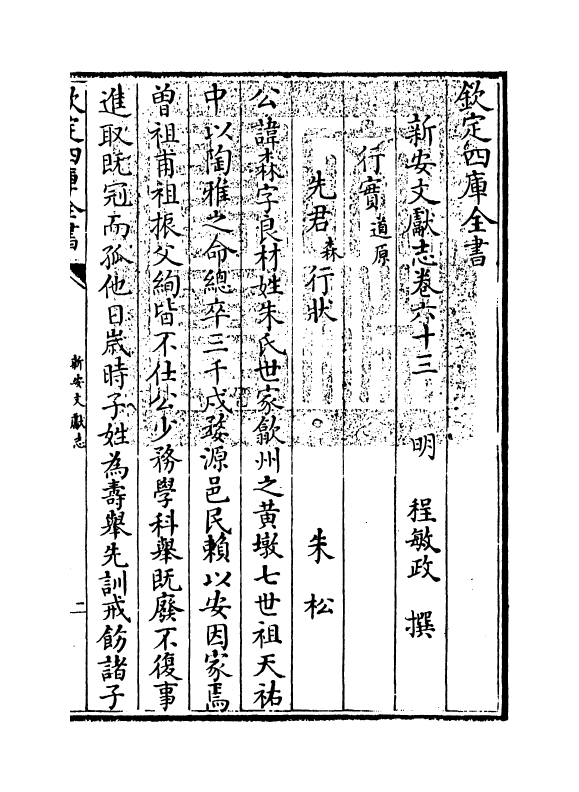 欽定四庫全書
新安文獻志卷六十三　明　程敏政　撰
行實道原
先君森行狀　朱松
公諱森字良材姓朱氏世家歙州之黃墩七世祖天祐
中以陶雅之命總卒三千戍婺源邑民賴以安因家焉
曾祖甫祖振父絢皆不仕公少務學科舉既廢不復事
進取既冠而孤他日歲時子姓為壽舉先訓戒飭諸子
欽定四庫全書
新安文獻志
二